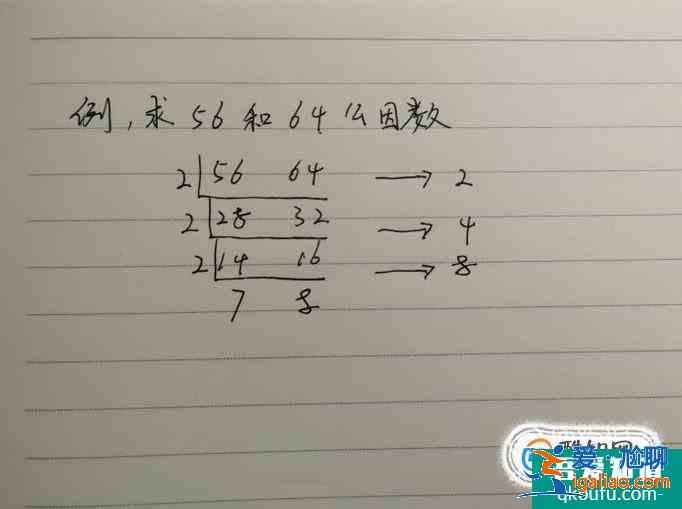 例，求 56 和 64 公因数
2 56 64 → 2
2 28 32 → 4
2 14 16 → 8
7 8
爱·尬聊
igaliao.com